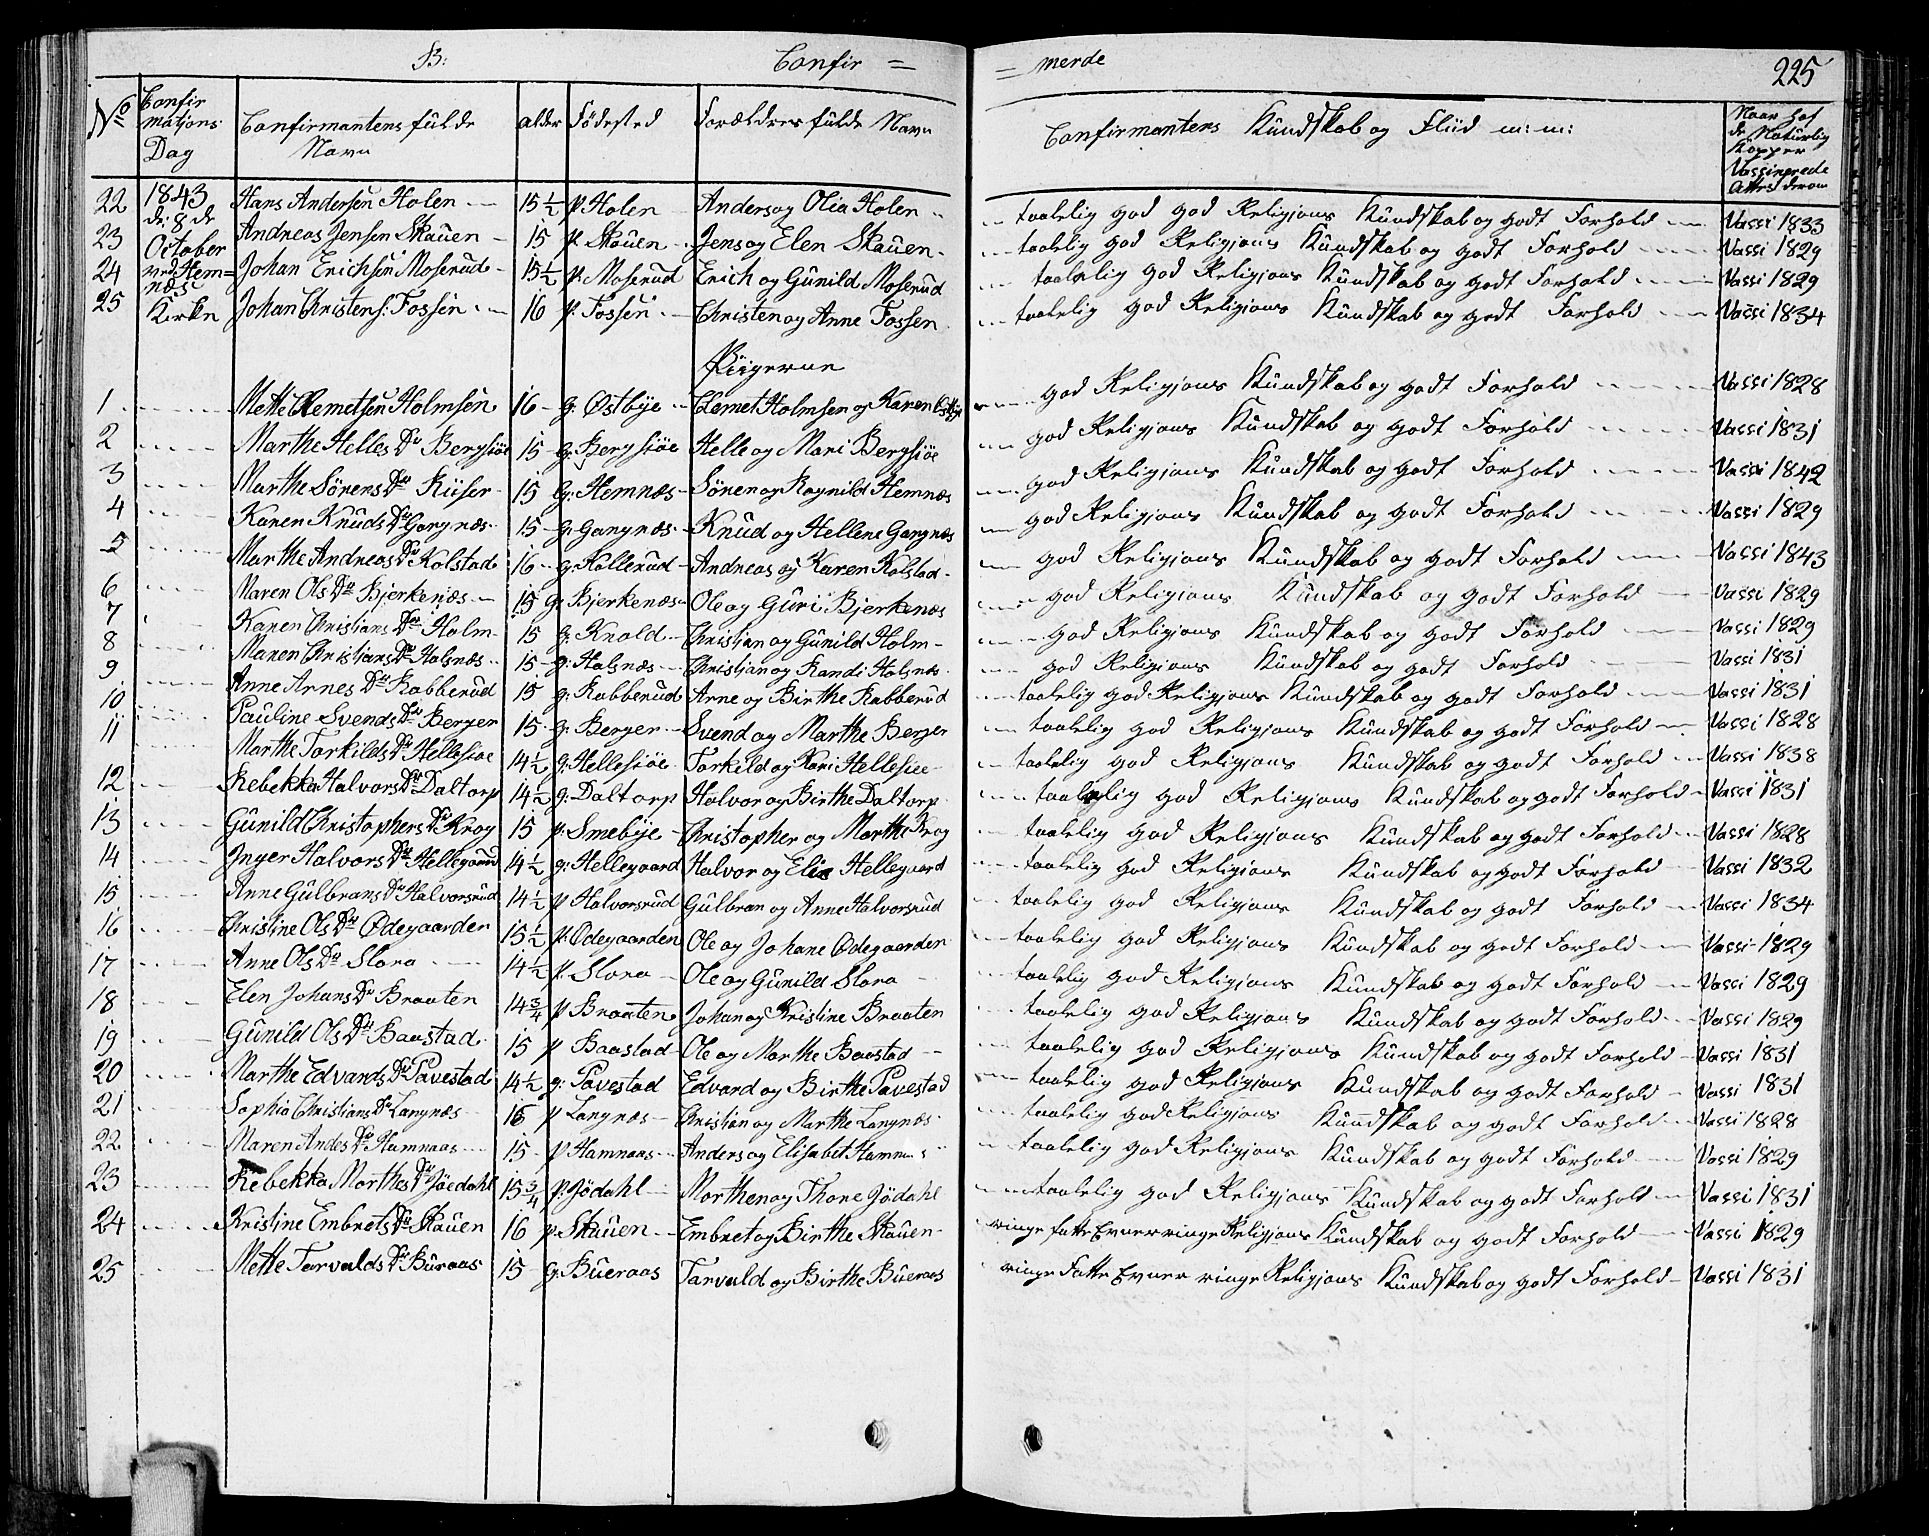 B: Confir = = merde 225
No Confirmations Dag Confirmantens fulde Navn alder Fødested Forældres fulde Navn Confirmantens Kundskab og Fliid m: m: Naar haf de Naturlig Kopper Vassinerede Attest derom
1843 de: 8 de October ved Hemnæs Kirke
22 Hans Andersen Holen 15½ p Holen Anders og Olia Holen taalelig god god Religjons Kundskab og godt Forhold Vassi 1833
23 Andreas Jensen Skauen 15 p. Skauen Jens og Elen Skauen taalelig god Religjons Kundskab og godt Forhold Vassi 1829
24 Johan Erichsen Moserud 15½ p. Moserud Erich og Gunild Moserud taalelig god Religjons Kundskab og godt Forhold Vassi 1829
25 Johan Christens: Fossen 16 p. Fossen Christen og Anne Fossen taalelig god Religjons Kundskab og godt Forhold Vassi 1834
Piigerne
1 Mette Clemetsen Holmsen 16 g: Østbye Clemet Holmsen og Karen Østbye god Religjons Kundskab og godt Forhold Vassi 1828
2 Marthe Helles Dr Bergsiøe 15 g: Bergsiøe Helle og Mari Bergsiøe god Religjons Kundskab og godt Forhold Vassi 1831
3 Marthe Sörens Dr Riiser 15 G: Hemnæs Sören og Ragnild Hemnæs god Religjons Kundskab og godt Forhold Vassi 1842
4 Karen Knuds Dr Gangnæs 15 g: Gangnæs Knud og Hellene Gangnæs god Religjons Kundskab og godt Forhold Vassi 1829
5 Marthe Andreas Dr Kolstad 16 g: Kollerud Andreas og Karen Kolstad god Religjons Kundskab og godt Forhold Vassi 1843
6 Maren Ols Dr Bjerkenæs 15 g: Bjerkenæs Ole og Guri Bjerkenæs god Religjons Kundskab og godt Forhold Vassi 1829
7 Karen Christians Dr Holm 15 g: Knold Christian og Gunild Holm god Religjons Kundskab og godt Forhold Vassi 1829
8 Maren Christians Dr Halsnæs 15 g: Halsnæs Christian og Randi Halsnæs god Religjons Kundskab og godt Forhold Vassi 1831
9 Anne Arnes Dr Rabberud 15 g: Rabberud Arne og Birthe Rabberud taalelig god Religjons Kundskab og godt Forhold Vassi 1831
10 Pauline Svends Dr Berger 15 g: Berger Svend og Marthe Berger taalelig god Religjons Kundskab og godt Forhold Vassi 1828
11 Marthe Torkilds Dr Hellesiøe 14½ g: Hellesiøe Torkild og Kari Hellesiøe taalelig god Religjons Kundskab og godt Forhold Vassi 1838
12 Rebekka Halvors Dr Daltorp 14½ g: Daltorp Halvor og Birthe Daltorp taalelig god Religjons Kundskab og godt Forhold Vassi 1831
13 Gunild Christophers Dr Krog 15 p: Smebye Christopher og Marthe Krog taalelig god Religjons Kundskab og godt Forhold Vassi 1828
14 Inger Halvors Dr Hellegaard 14½ g: Hellegaard Halvor og Elia Hellegaard taalelig god Religjons Kundskab og godt Forhold Vassi 1832
15 Anne Gulbrans Dr Halvorsrud 14½ p Halvorsrud Gulbran og Anne Halvorsrud taalelig god Religjons Kundskab og godt Forhold Vassi 1834
16 Christine Ols Dr Ødegaarden 15½ p. Ødegaarden Ole og Johane Ødegaarden taalelig god Religjons Kundskab og godt Forhold Vassi 1829
17 Anne Ols Dr Slora 14½ p. Slora Ole og Gunild Slora taalelig god Religjons Kundskab og godt Forhold Vassi 1829
18 Elen Johans Dr Braaten 14¾ p Braaten Johan og Kristine Braaten taalelig god Religjons Kundskab og godt Forhold Vassi 1829
19 Gunild Ols Dr Baastad 15 p Baastad Ole og Marthe Baastad taalelig god Religjons Kundskab og godt Forhold Vassi 1831
20 Marthe Edvards Dr Pavestad 14½ g: Pavestad Edvard og Birthe Pavestad taalelig god Religjons Kundskab og godt Forhold Vassi 1831
21 Sophia Christians Dr Langnæs 16 p Langnæs Christian og Marthe Langnæs taalelig god Religjons Kundskab og godt Forhold Vassi 1828
22 Maren Andes Dr Hamnaas 15 p Hamnaas Anders og Elisabet Hamnaas taalelig god Religjons Kundskab og godt Forhold Vassi 1829
23 Rebekka Morthes Dr Jöedahl 15¾ p: Jödahl Morthen og Thone Jödahl taalelig god Religjons Kundskab og godt Forhold Vassi 1831
24 Kristine Embrets Dr Skauen 16 p. Skauen Embret og Birthe Skauen ringe fatte Evner ringe Religjons Kundskab og godt Forhold Vassi 1829
25 Mette Torvalds Dr Buraas 15 G: Bueraas Torvald og Birthe Bueraas ringe Fatte Evner ringe Religjons Kundskab og godt Forhold Vassi 1831